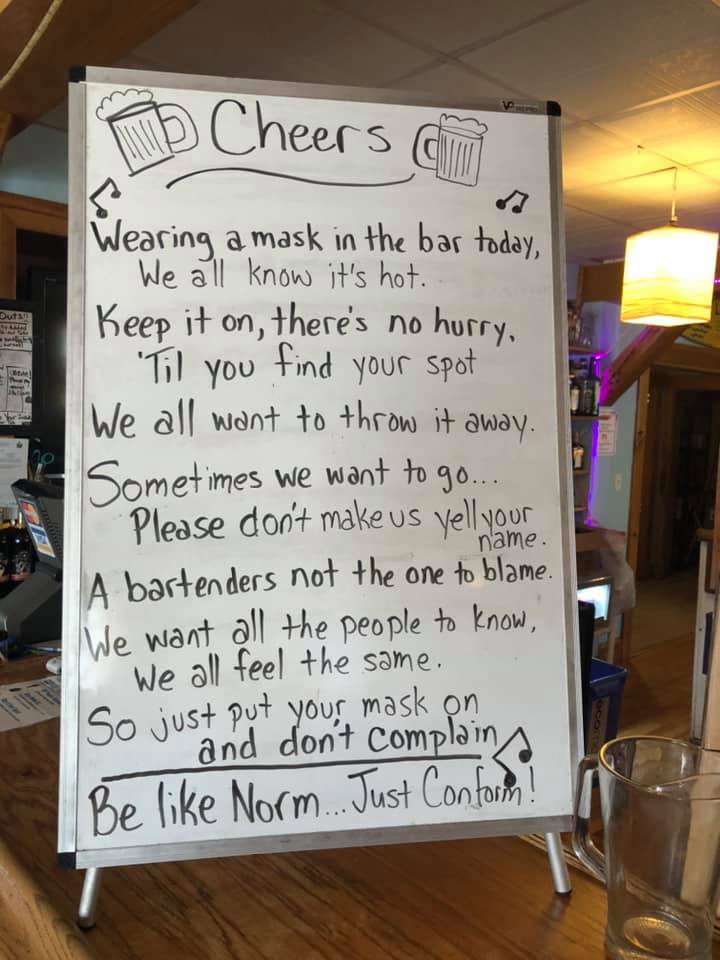 Cheers
Wearing a mask in the bar today,
We all know it's hot.
Keep it on, there's no hurry,
'Til you find your spot
We all want to throw it away.
Sometimes we want to go...
Please don't make us yell your
name.
A bartenders not the one to blame.
We want all the people to know,
We all feel the same.
So just put your mask on
and don't complain
Be like Norm... Just Conform!
Outs!!